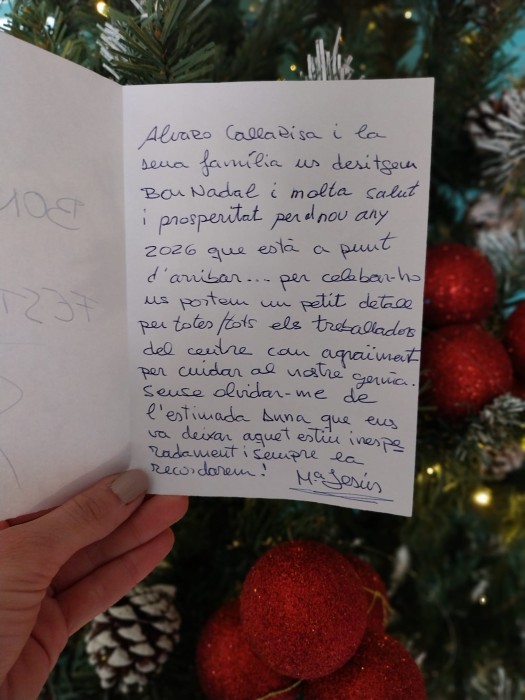 Alvaro Callabisa i la
seua família us desitgem
Bon Nadal i molta salut
i prosperitat per al nou any
2026 que està a punt
d'arribar... per celebar-ho
us portem un petit detall
per totes/tots els treballadors
del centre com agraïment
per cuidar al nostre germà.
Sense olvidar-me de
l'estimada Anna que ens
va deixar aquet estiu inespe
radament i sempre la
recordarem!
Mª Jesús
BON
FEST